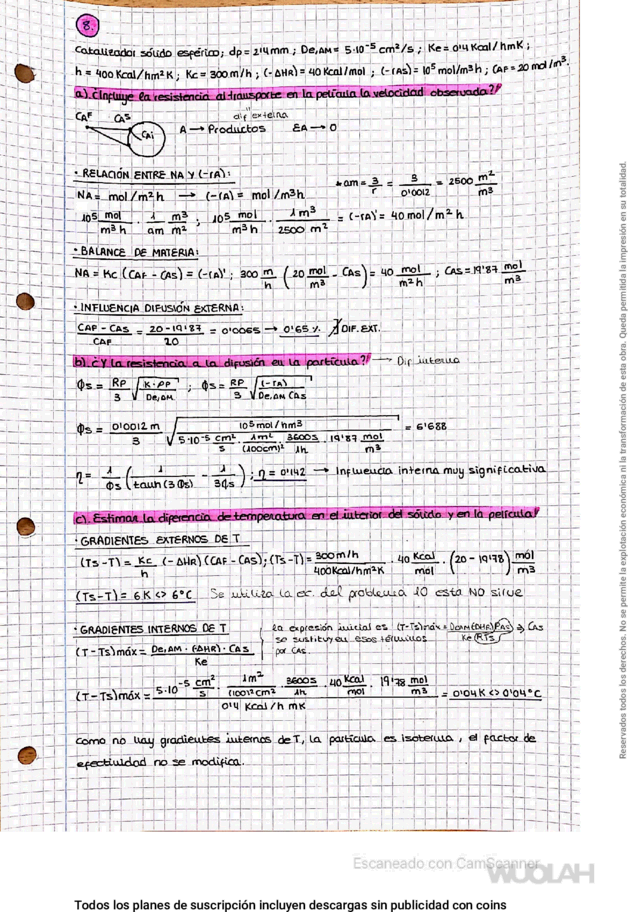 8.
Catalizador sólido esférico; dp = 2'4mm; De,AM = 5·10⁻⁵ cm²/s; Ke = 0'4 Kcal/hmK;
h = 400 Kcal/hm²K; Kc = 300 m/h; (-ΔHR) = 40 Kcal/mol; (-rAs) = 10⁵ mol/m³h; CAF = 20 mol/m³.
a). ¿Influye la resistencia al transporte en la película la velocidad observada?
dif externa
CAF CAS CAi
A → Productos EA → 0
· RELACIÓN ENTRE NA Y (-rA):
* am = 3/r = 3/0'0012 = 2500 m²/m³
NA = mol/m²h → (-rA) = mol/m³h
10⁵ mol/m³h · 1/am m³/m² ; 10⁵ mol/m³h · 1m³/2500 m² = (-rA)' = 40 mol/m²h
· BALANCE DE MATERIA:
NA = Kc (CAF - CAS) = (-rA)' ; 300 m/h (20 mol/m³ - CAS) = 40 mol/m²h ; CAS = 19'87 mol/m³
· INFLUENCIA DIFUSIÓN EXTERNA:
CAF - CAS/CAF = 20-19'87/20 = 0'0065 → 0'65 % ∄ DIF. EXT.
b). ¿Y la resistencia a la difusión en la partícula? → Dif interna
Φs = RP/3 √(K·ρP/De,AM) ; Φs = RP/3 √((-rA)/De,AM CAS)
Φs = 0'0012 m/3 √(10⁵ mol/hm³ / 5·10⁻⁵ cm²/s · 1m²/(100cm)² · 3600s/1h · 19'87 mol/m³) = 6'688
η = 1/Φs (1/tanh(3Φs) - 1/3Φs) ; η = 0'142 → Influencia interna muy significativa
c). Estimar la diferencia de temperatura en el interior del sólido y en la película
· GRADIENTES EXTERNOS DE T
(Ts - T) = Kc/h (-ΔHR)(CAF - CAS); (Ts - T) = 300 m/h/400Kcal/hm²K · 40 Kcal/mol · (20 - 19'78) mol/m³
(Ts - T) = 6K <> 6°C Se utiliza la ec. del problema 10 esta NO sirve
· GRADIENTES INTERNOS DE T
la expresión inicial es (T-Ts)máx = DeAM(ΔHR)PAS/Ke(RTs) ⇒ CAS
se sustituyen esos términos
por CAS.
(T - Ts)máx = De,AM · (-ΔHR) · CAS/Ke
(T - Ts)máx = 5·10⁻⁵ cm²/s · 1m²/(100)²cm² · 3600s/1h · 40 Kcal/mol · 19'78 mol/m³ / 0'4 Kcal/h mK = 0'04K <> 0'04°C
como no hay gradientes internos de T, la partícula es isoterma, el factor de
efectividad no se modifica.
Reservados todos los derechos. No se permite la explotación económica ni la transformación de esta obra. Queda permitida la impresión en su totalidad.
Escaneado con CamScanner
WUOLAH
Todos los planes de suscripción incluyen descargas sin publicidad con coins